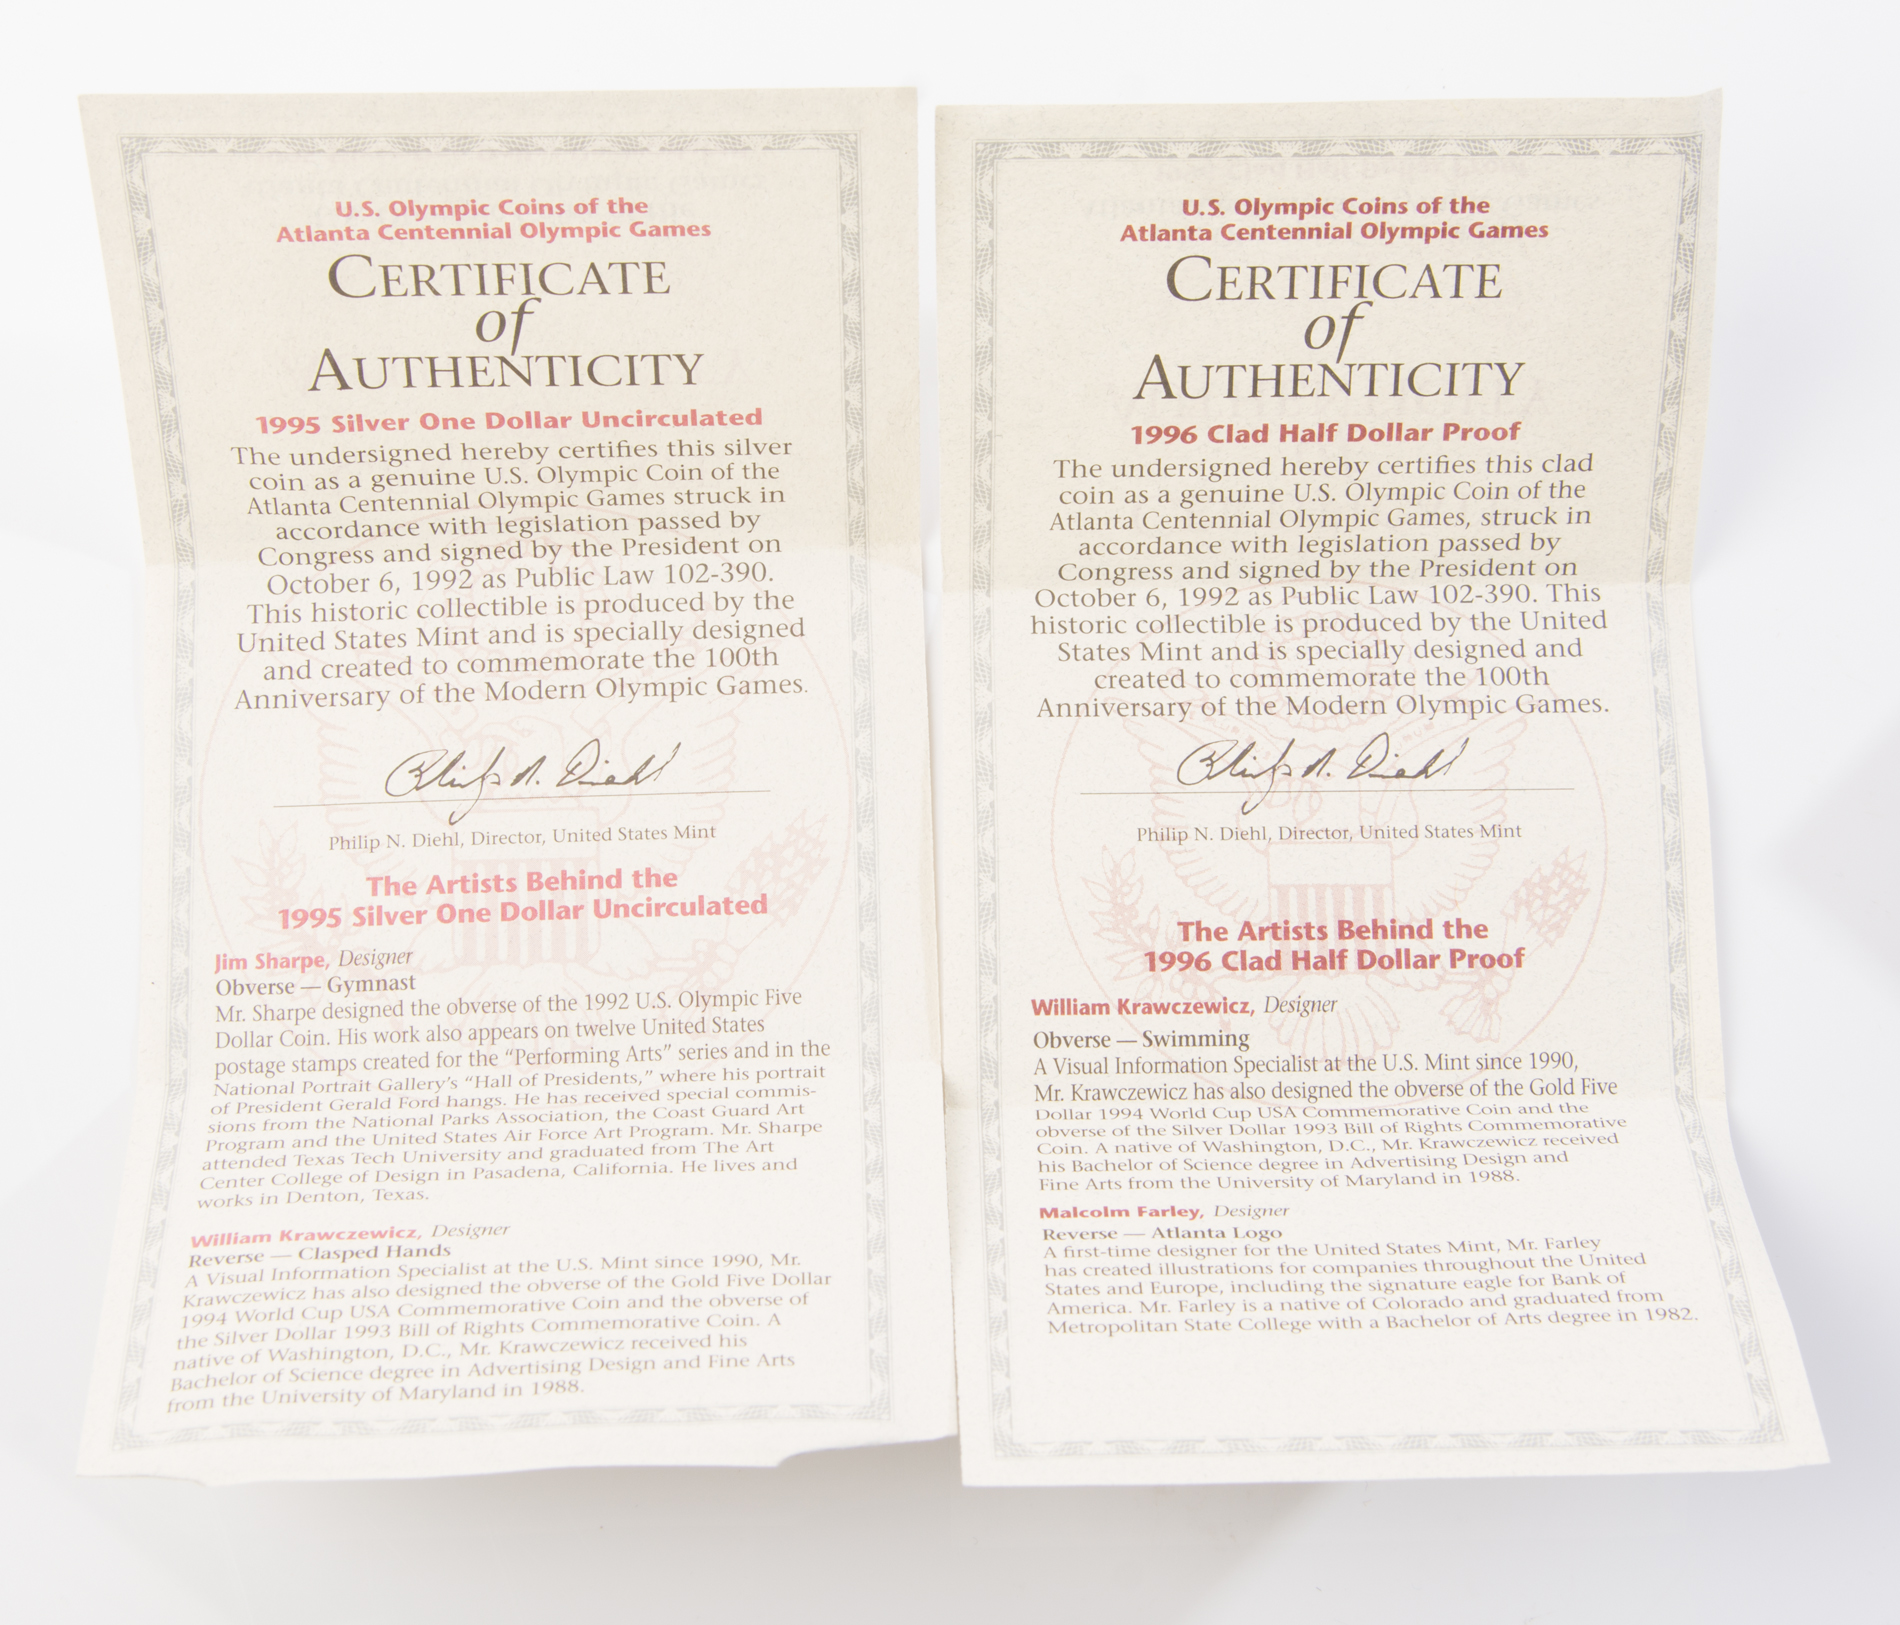 U.S. Olympic Coins of the
Atlanta Centennial Olympic Games
CERTIFICATE
of
AUTHENTICITY
1995 Silver One Dollar Uncirculated
The undersigned hereby certifies this silver
coin as a genuine U.S. Olympic Coin of the
Atlanta Centennial Olympic Games struck in
accordance with legislation passed by
Congress and signed by the President on
October 6, 1992 as Public Law 102-390.
This historic collectible is produced by the
United States Mint and is specially designed
and created to commemorate the 100th
Anniversary of the Modern Olympic Games.
Philip N. Diehl
Philip N. Diehl, Director, United States Mint
The Artists Behind the
1995 Silver One Dollar Uncirculated
Jim Sharpe, Designer
Obverse — Gymnast
Mr. Sharpe designed the obverse of the 1992 U.S. Olympic Five
Dollar Coin. His work also appears on twelve United States
postage stamps created for the “Performing Arts” series and in the
National Portrait Gallery’s “Hall of Presidents,” where his portrait
of President Gerald Ford hangs. He has received special commis-
sions from the National Parks Association, the Coast Guard Art
Program and the United States Air Force Art Program. Mr. Sharpe
attended Texas Tech University and graduated from The Art
Center College of Design in Pasadena, California. He lives and
works in Denton, Texas.
William Krawczewicz, Designer
Reverse — Clasped Hands
A Visual Information Specialist at the U.S. Mint since 1990, Mr.
Krawczewicz has also designed the obverse of the Gold Five Dollar
1994 World Cup USA Commemorative Coin and the obverse of
the Silver Dollar 1993 Bill of Rights Commemorative Coin. A
native of Washington, D.C., Mr. Krawczewicz received his
Bachelor of Science degree in Advertising Design and Fine Arts
from the University of Maryland in 1988.
U.S. Olympic Coins of the
Atlanta Centennial Olympic Games
CERTIFICATE
of
AUTHENTICITY
1996 Clad Half Dollar Proof
The undersigned hereby certifies this clad
coin as a genuine U.S. Olympic Coin of the
Atlanta Centennial Olympic Games, struck in
accordance with legislation passed by
Congress and signed by the President on
October 6, 1992 as Public Law 102-390. This
historic collectible is produced by the United
States Mint and is specially designed and
created to commemorate the 100th
Anniversary of the Modern Olympic Games.
Philip N. Diehl
Philip N. Diehl, Director, United States Mint
The Artists Behind the
1996 Clad Half Dollar Proof
William Krawczewicz, Designer
Obverse — Swimming
A Visual Information Specialist at the U.S. Mint since 1990,
Mr. Krawczewicz has also designed the obverse of the Gold Five
Dollar 1994 World Cup USA Commemorative Coin and the
obverse of the Silver Dollar 1993 Bill of Rights Commemorative
Coin. A native of Washington, D.C., Mr. Krawczewicz received
his Bachelor of Science degree in Advertising Design and
Fine Arts from the University of Maryland in 1988.
Malcolm Farley, Designer
Reverse — Atlanta Logo
A first-time designer for the United States Mint, Mr. Farley
has created illustrations for companies throughout the United
States and Europe, including the signature eagle for Bank of
America. Mr. Farley is a native of Colorado and graduated from
Metropolitan State College with a Bachelor of Arts degree in 1982.